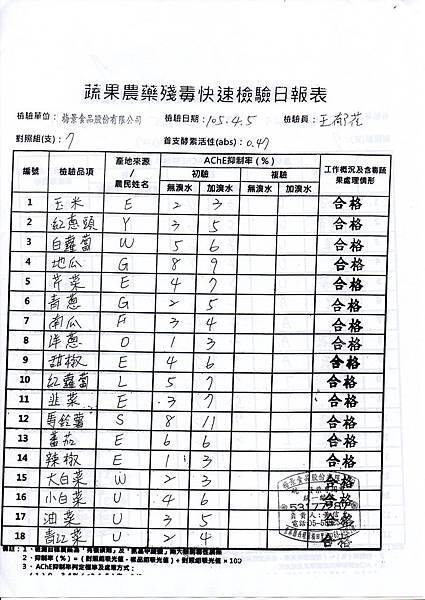 蔬果農藥殘毒快速檢驗日報表
檢驗單位：梅景食品股份有限公司 檢驗日期：105.4.5 檢驗員：王郁茹
對照組(支)：7 首支酵素活性(abs)：0.47
編號 檢驗品項 產地來源/農民姓名 AChE抑制率(%) 工作概況及含毒蔬果處理情形
初驗 複驗
無溴水 加溴水 無溴水 加溴水
1 玉米 E 2 3 合格
2 紅蔥頭 Y 3 5 合格
3 白蘿蔔 W 5 6 合格
4 地瓜 G 8 9 合格
5 芹菜 E 4 7 合格
6 青蔥 G 2 5 合格
7 南瓜 F 3 4 合格
8 洋蔥 D 1 3 合格
9 甜椒 E 4 6 合格
10 紅蘿蔔 L 5 7 合格
11 韭菜 E 3 7 合格
12 馬鈴薯 S 8 11 合格
13 蕃茄 E 6 6 合格
14 辣椒 E 1 3 合格
15 大白菜 W 2 3 合格
16 小白菜 U 4 6 合格
17 油菜 U 3 5 合格
18 青江菜 U 2 4 合格
梅景食品股份有限公司
53177987
2、抑制率(%)=(對照組吸光值-樣品組吸光值)÷對照組吸光值×100
3、AChE抑制率判定標準及處理方式：